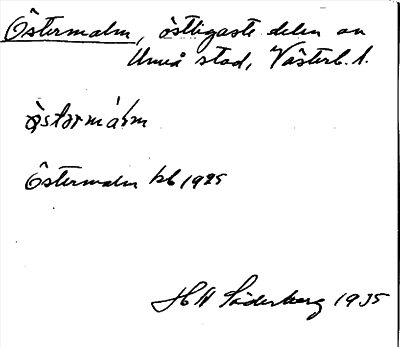 Östermalm, östligaste delen av
Umeå stad, Västerb. l.
östərmálm
Östermalm kb 1925
H H Söderberg 1935